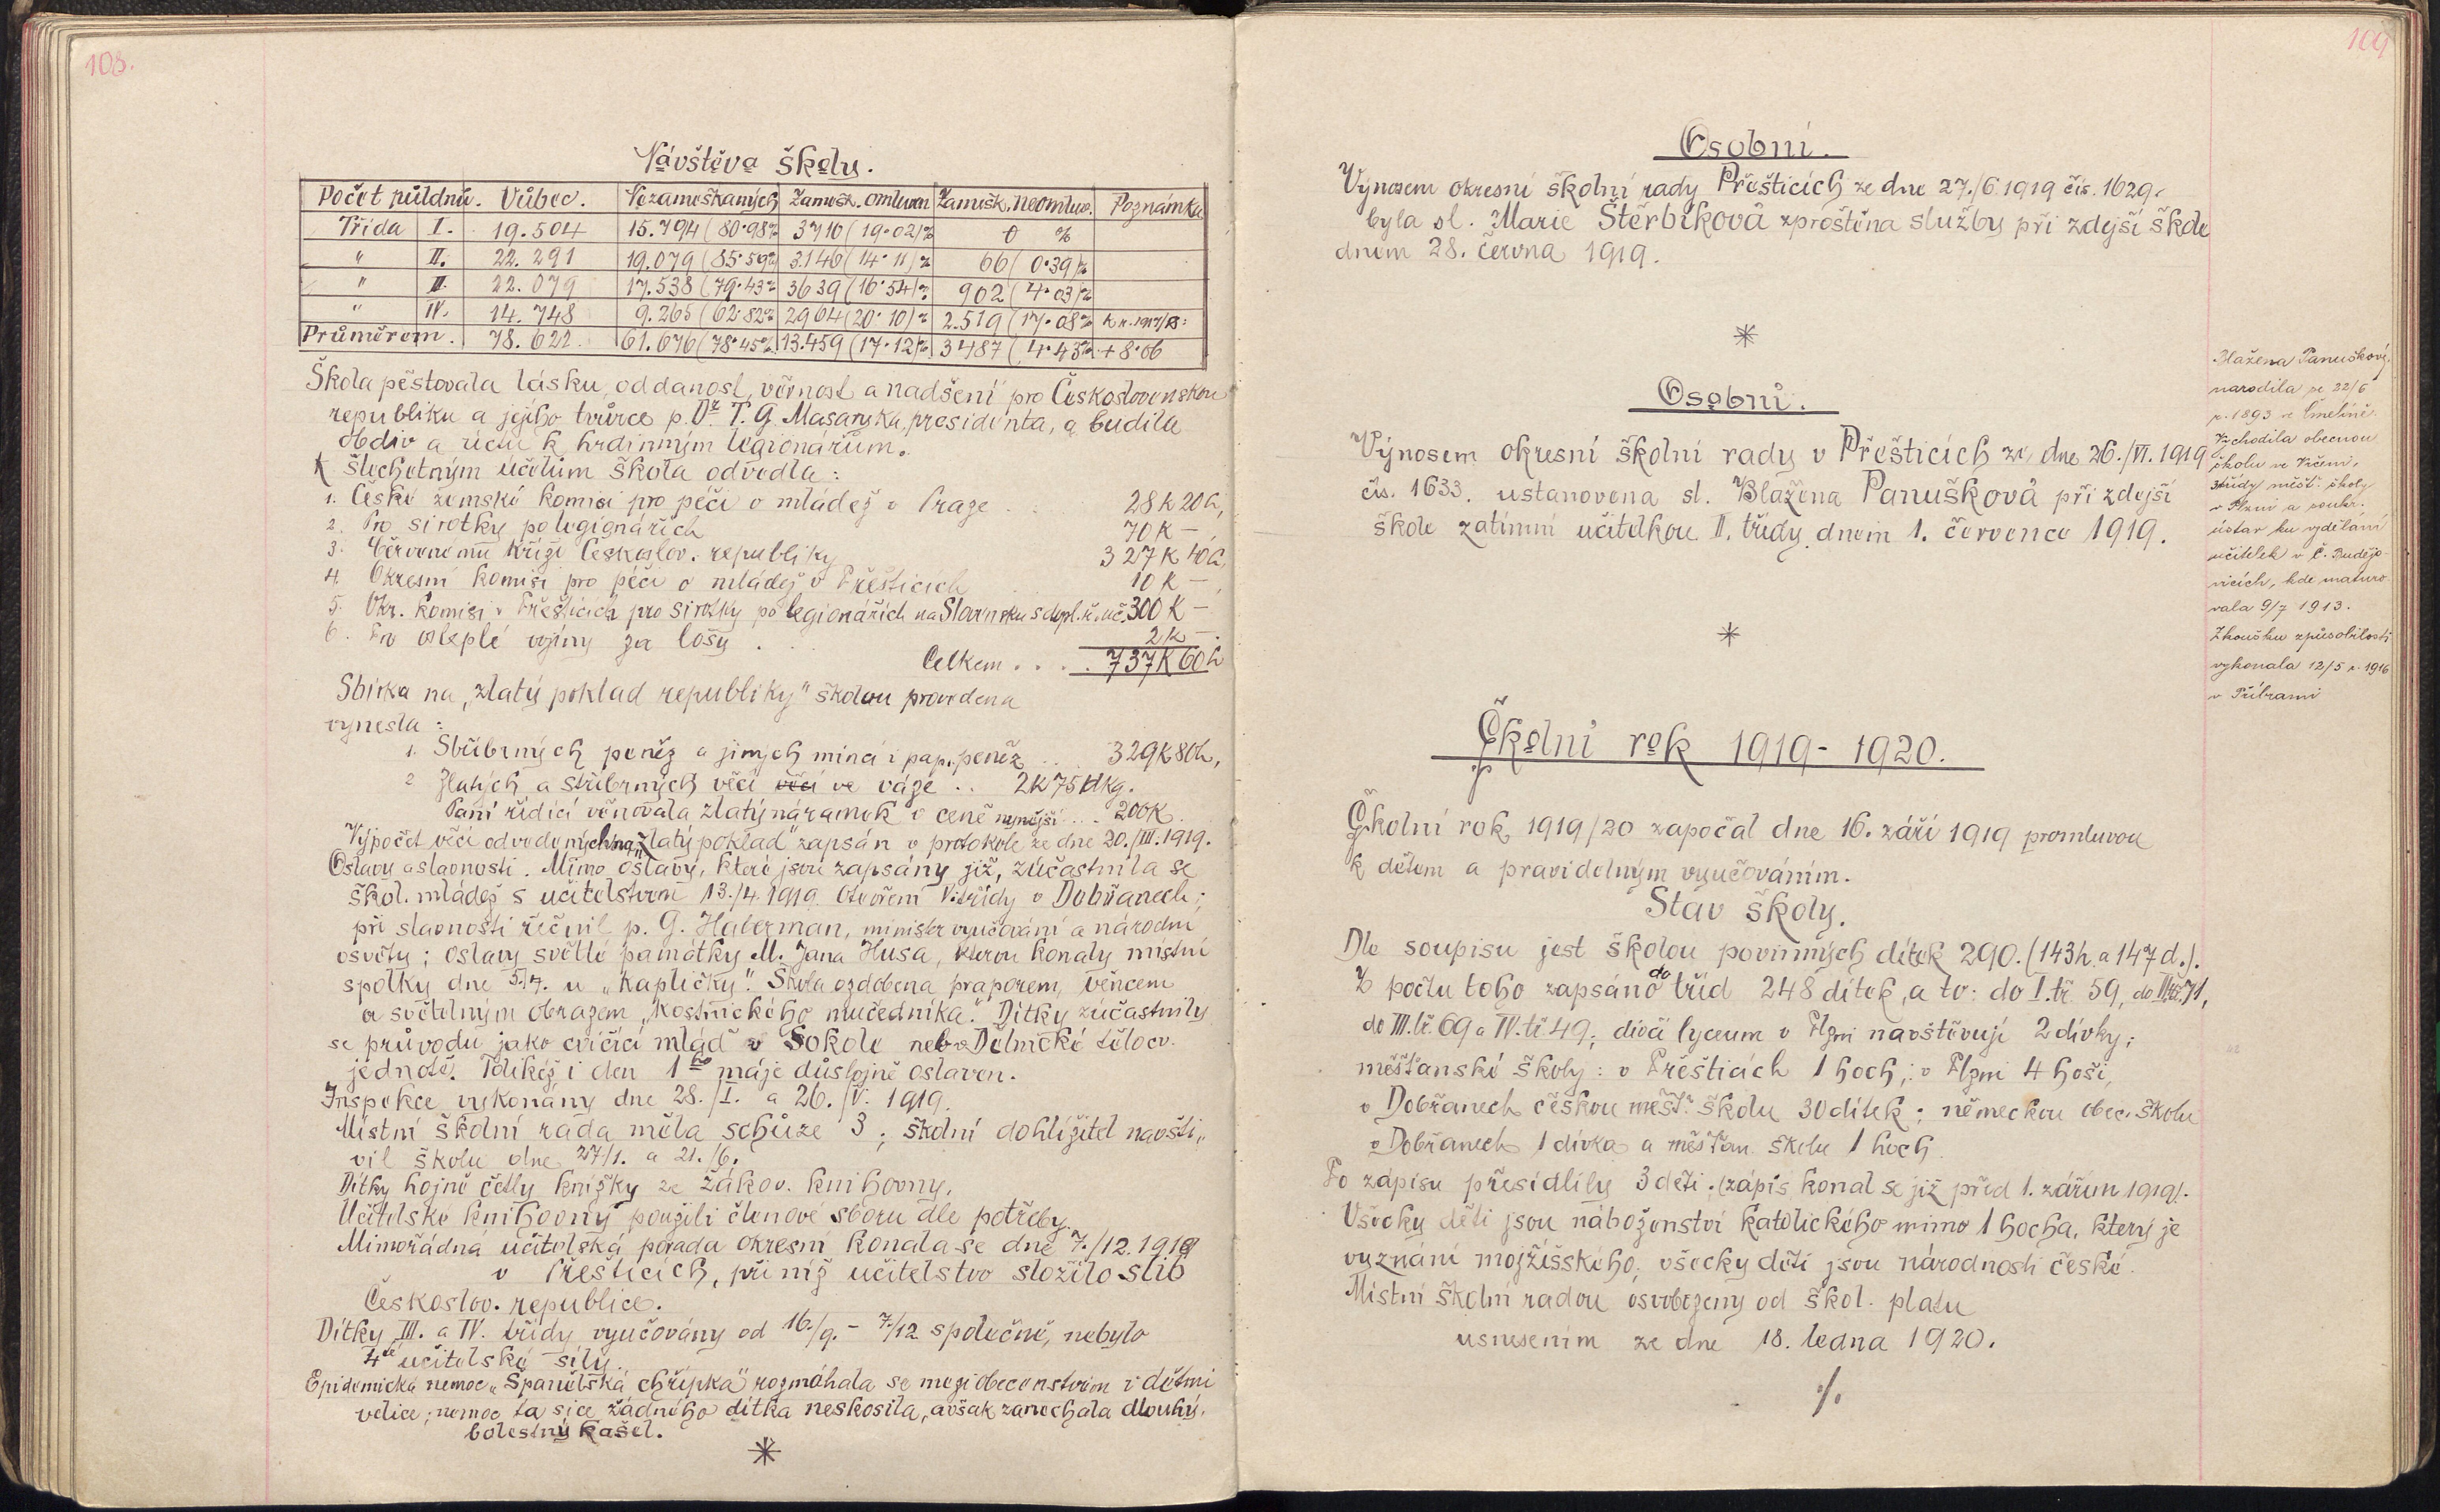 108.
Návštěva školy.
Počet půldnů. Vůbec. Nezameškaných Zamešk. omluven Zamešk. neomluv. Poznámka
Třída I. 19.504 15.794 (80·98% 3710 (19·02)% 0 %
" II. 22.291 19.079 (85·59% 3.146 (14·11)% 66 (0·39)%
" III. 22.079 17.538 (79·43% 3639 (16·54)% 902 (4·03)%
" IV. 14.748 9.265 (62·82% 2964 (20·10)% 2.519 (17·08% k r. 1917/18:
Průměrem. 78.622 61.676 (78·45% 13.459 (17·12)% 3487 (4·43% + 8·06
Škola pěstovala lásku, oddanost, věrnost a nadšení pro Československou
republiku a jejího tvůrce p. Dr. T. G. Masaryka, presidenta, a budila
obdiv a úctu k hrdinným legionářům.
K šlechetným účelům škola odvedla:
1. České zemské komisi pro péči o mládež v Praze . . . 28 K 20 h,
2. Pro sirotky po legionářích 70 K —
3. Červenému kříži Českoslov. republiky 327 K 40 h,
4. Okresní komisi pro péči o mládež v Přešticích 10 K — ,
5. Okr. komisi v Přešticích pro sirotky po legionářích na Slovensku 300 K —
6. Pro osleplé vojíny za losy . . . 2 K —.
Celkem . . . . 737 K 60 h
Sbírka na „zlatý poklad republiky" školou provedena
vynesla :
1. Stříbrných peněz a jiných mincí i pap. peněz . . . 329 K 80 h,
2 Zlatých a stříbrných věcí věcí ve váze . . 2 K 75 dkg.
Paní řídící věnovala zlatý náramek v ceně nynější . . . 200 K.
Výpočet věcí odvedených na „zlatý poklad" zapsán v protokole ze dne 20./III. 1919.
Oslavy a slavnosti. Mimo oslavy, které jsou zapsány již, zúčastnila se
škol. mládež s učitelstvem 13./4. 1919 otevření V. třídy v Dobřanech;
při slavnosti řečnil p. G. Haberman, ministr vyučování a národní
osvěty; oslavy světlé památky M. Jana Husa, kterou konaly místní
spolky dne 5./7. u „kapličky". Škola ozdobena praporem, věncem
a světelným obrazem „kostnického mučedníka". Dítky zúčastnily
se průvodu jako cvičící mládež v Sokole neb v Dělnické tělocv.
jednotě. Tolikéž i den 1ho máje důstojně oslaven.
Inspekce vykonány dne 28./I. a 26./V. 1919.
Místní školní rada měla schůze 3; školní dohlížitel navští„
vil školu dne 27/1. a 21./6.
Dítky hojně četly knížky ze žákov. knihovny.
Učitelské knihovny použili členové sboru dle potřeby.
Mimořádná učitelská porada okresní konala se dne 7./12. 1918
v Přešticích, při níž učitelstvo složilo slib
Českoslov. republice.
Dítky III. a IV. třídy vyučovány od 16./9. – 7/12 společně, nebylo
4té učitelské síly.
Epidemická nemoc „Španělská chřipka" rozmáhala se mezi obecenstvem i dětmi
velice; nemoc ta sice žádného dítka neskosila, avšak zanechala dlouhý,
bolestný kašel.
*
109
Osobní.
Výnosem okresní školní rady Přešticích ze dne 27./6. 1919 čís. 1629.
byla sl. Marie Štěrbíková zproštěna služby při zdejší škole
dnem 28. června 1919.
*
Osobní.
Výnosem okresní školní rady v Přešticích ze dne 26./VI. 1919
čís. 1633. ustanovena sl. Blažena Panušková při zdejší
škole zatímní učitelkou II. třídy dnem 1. července 1919.
*
Blažena Panušková,
narodila se 22/6
r. 1893 ve
Vychodila obecnou
školu ve
3 třídy měšť. školy
v Plzni a soukr.
ústav ku vzdělání
učitelek v Č. Budějo-
vicích, kde maturo-
vala 9/7 1913.
Zkoušku způsobilosti
vykonala 12/5 r. 1916
v Příbrami
Školní rok 1919 - 1920.
Školní rok 1919/20 započal dne 16. září 1919 promluvou
k dětem a pravidelným vyučováním.
Stav školy.
Dle soupisu jest školou povinných dítek 290. (143 h. a 147 d.).
Z počtu toho zapsáno do tříd 248 dítek, a to: do I. tř. 59, do II. tř. 71,
do III. tř. 69 a IV. tř. 49; dívčí lyceum v Plzni navštěvují 2 dívky;
měšťanské školy: v Přešticích 1 hoch; v Plzni 4 hoši,
v Dobřanech českou měšť. školu 30 dítek; německou obec. školu
v Dobřanech 1 dívka a měšťan. školu 1 hoch.
Po zápisu přesídlily 3 děti. (zápis konal se již před 1. zářím 1919).
Všecky děti jsou náboženství katolického mimo 1 hocha, který je
vyznání mojžíšského; všecky děti jsou národnosti české.
Místní školní radou osvobozeny od škol. platu
usnesením ze dne 18. ledna 1920.
./.